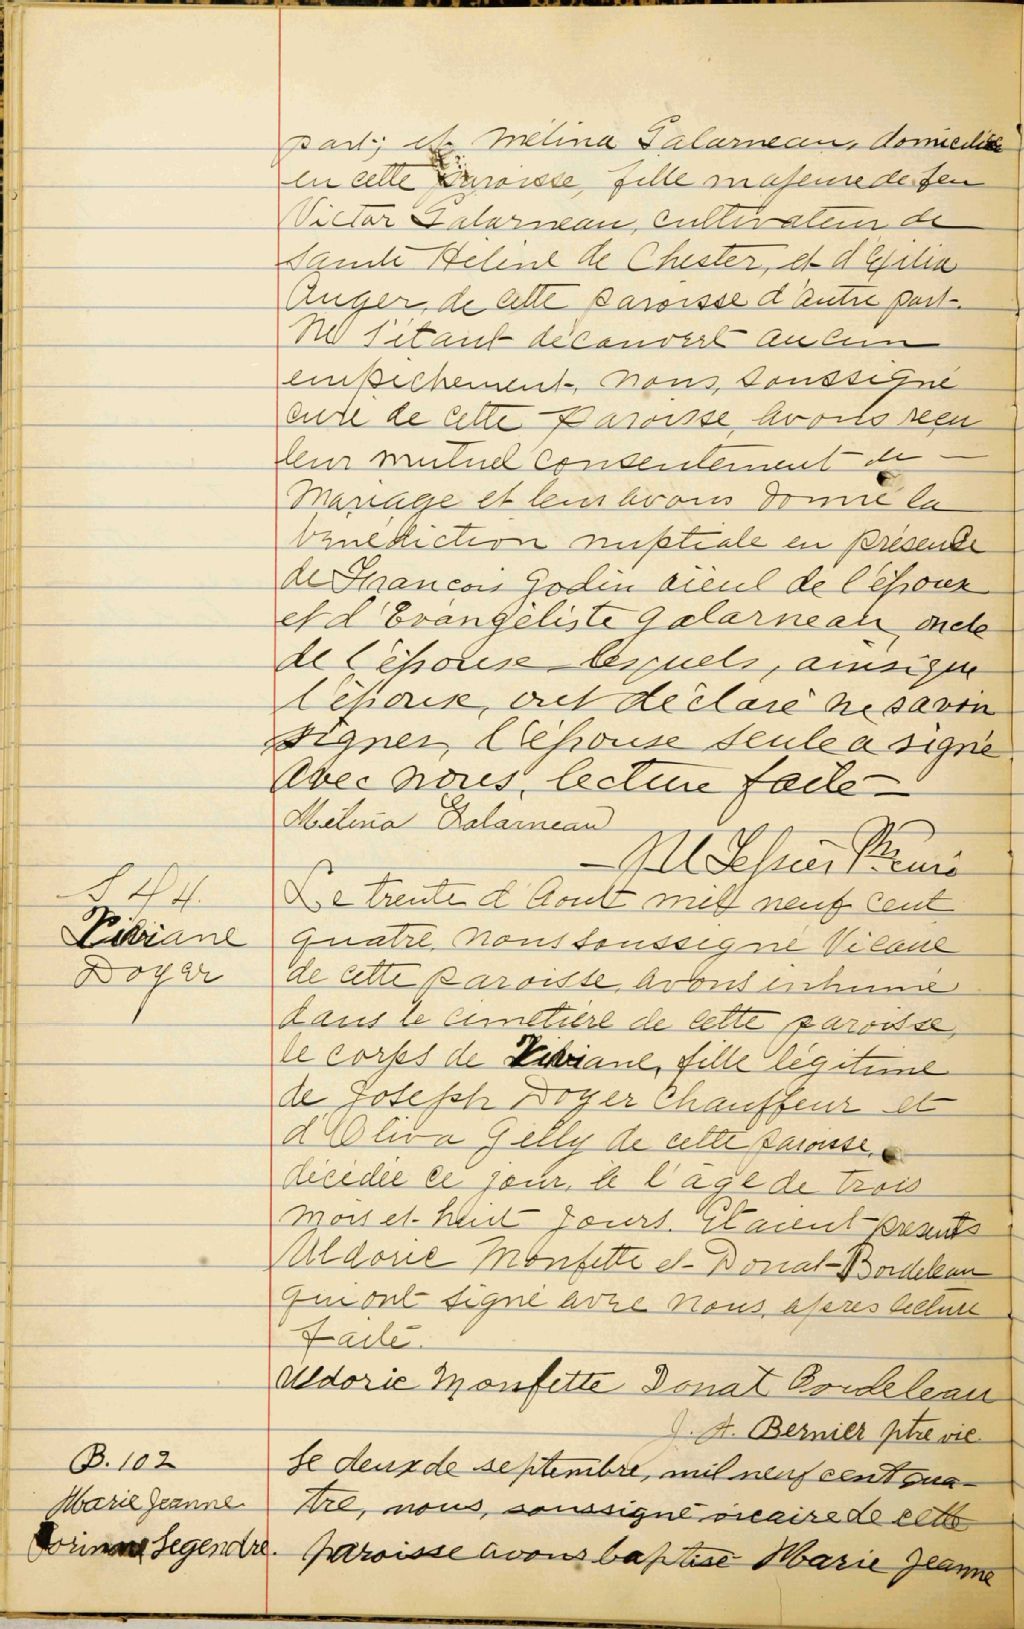 part; et Mélina Galarneau, domiciliée
en cette paroisse, fille majeure de feu
Victor Galarneau, cultivateur de
Sainte Hélène de Chester, et d'Exilia
Auger, de cette paroisse d'autre part.
Ne s'étant découvert aucun
empêchement, nous, soussigné
curé de cette paroisse, avons reçu
leur mutuel consentement de —
Mariage et leur avons donné la
bénédiction nuptiale en présence
de François Godin aïeul de l'époux
et d'Evangéliste Galarneau, oncle
de l'épouse lesquels, ainsi que
l'époux, ont déclaré ne savoir
signer, l'épouse seule a signé
avec nous, lecture faite —
Mélina Galarneau
Ptre curé
S 44.
Viviane
Doyer
Le trente d'Aout mil neuf cent
quatre, nous soussigné Vicaire
de cette paroisse, avons inhumé
dans le cimetière de cette paroisse,
le corps de Viviane, fille légitime
de Joseph Doyer Chauffeur et
d'Oliva Gelly de cette paroisse,
décédée ce jour, à l'âge de trois
mois et huit jours. Etaient présents
Uldoric Monfette et Donat Bordeleau
qui ont signé avec nous, après lecture
faite.
Uldoric Monfette Donat Bordeleau
J. A. Bernier ptre vic.
B. 102
Marie Jeanne
Corinne Legendre.
Le deux de septembre, mil neuf cent qua-
tre, nous, soussigné vicaire de cette
paroisse avons baptisé Marie Jeanne